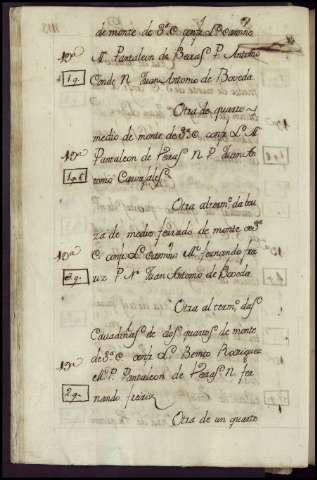 de monte de S.ª C. confr. L. Camino
M. Pantaleon de Heras P. Antonio
Conde N. Juan Antonio de Boveda
1 q.
Otra de quarto y
medio de monte de S.ª C. confr. L. M.
Pantaleon de Heras N. P. Juan An
tonio
Otra al term.º da bau
za de medio ferrado de monte de S.ª
C. confr. L. Camino M. fernando frei
P. N. Juan Antonio de Boveda
3 q.
Otra al term.º das
Cavadiñas de dos quartos de monte
de S.ª C. confr. L. Benito Rodriguez
M. P. Pantaleon de Heras N. fer
nando freire
2 q.
Otra de un quarto